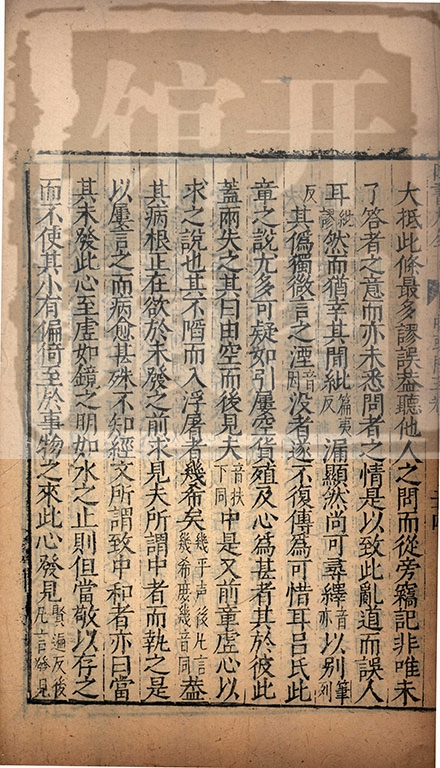 大抵此條最多謬誤蓋聽他人之問而從旁竊記非唯未
了答者之意而亦未悉問者之情是以致此亂道而誤人
耳然而猶幸其間紕篇夷反漏顯然尚可尋繹音亦以別筆列
反其偽獨微言之湮音因沒者遂不復傳為可惜耳呂氏此
章之說尤多可疑如引屢空貨殖及心為甚者其於彼此
蓋兩失之其曰由空而後見夫音扶下同中是又前章虛心以
求之說也其不陷而入浮屠者幾希矣幾平聲後凡言幾希幾音同蓋
其病根正在欲於未發之前求見夫所謂中者而執之是
以屢言之而病愈甚殊不知經文所謂致中和者亦曰當
其未發此心至虛如鏡之明如水之止則但當敬以存之
而不使其小有偏倚至於事物之來此心發見賢遍反後凡言發見